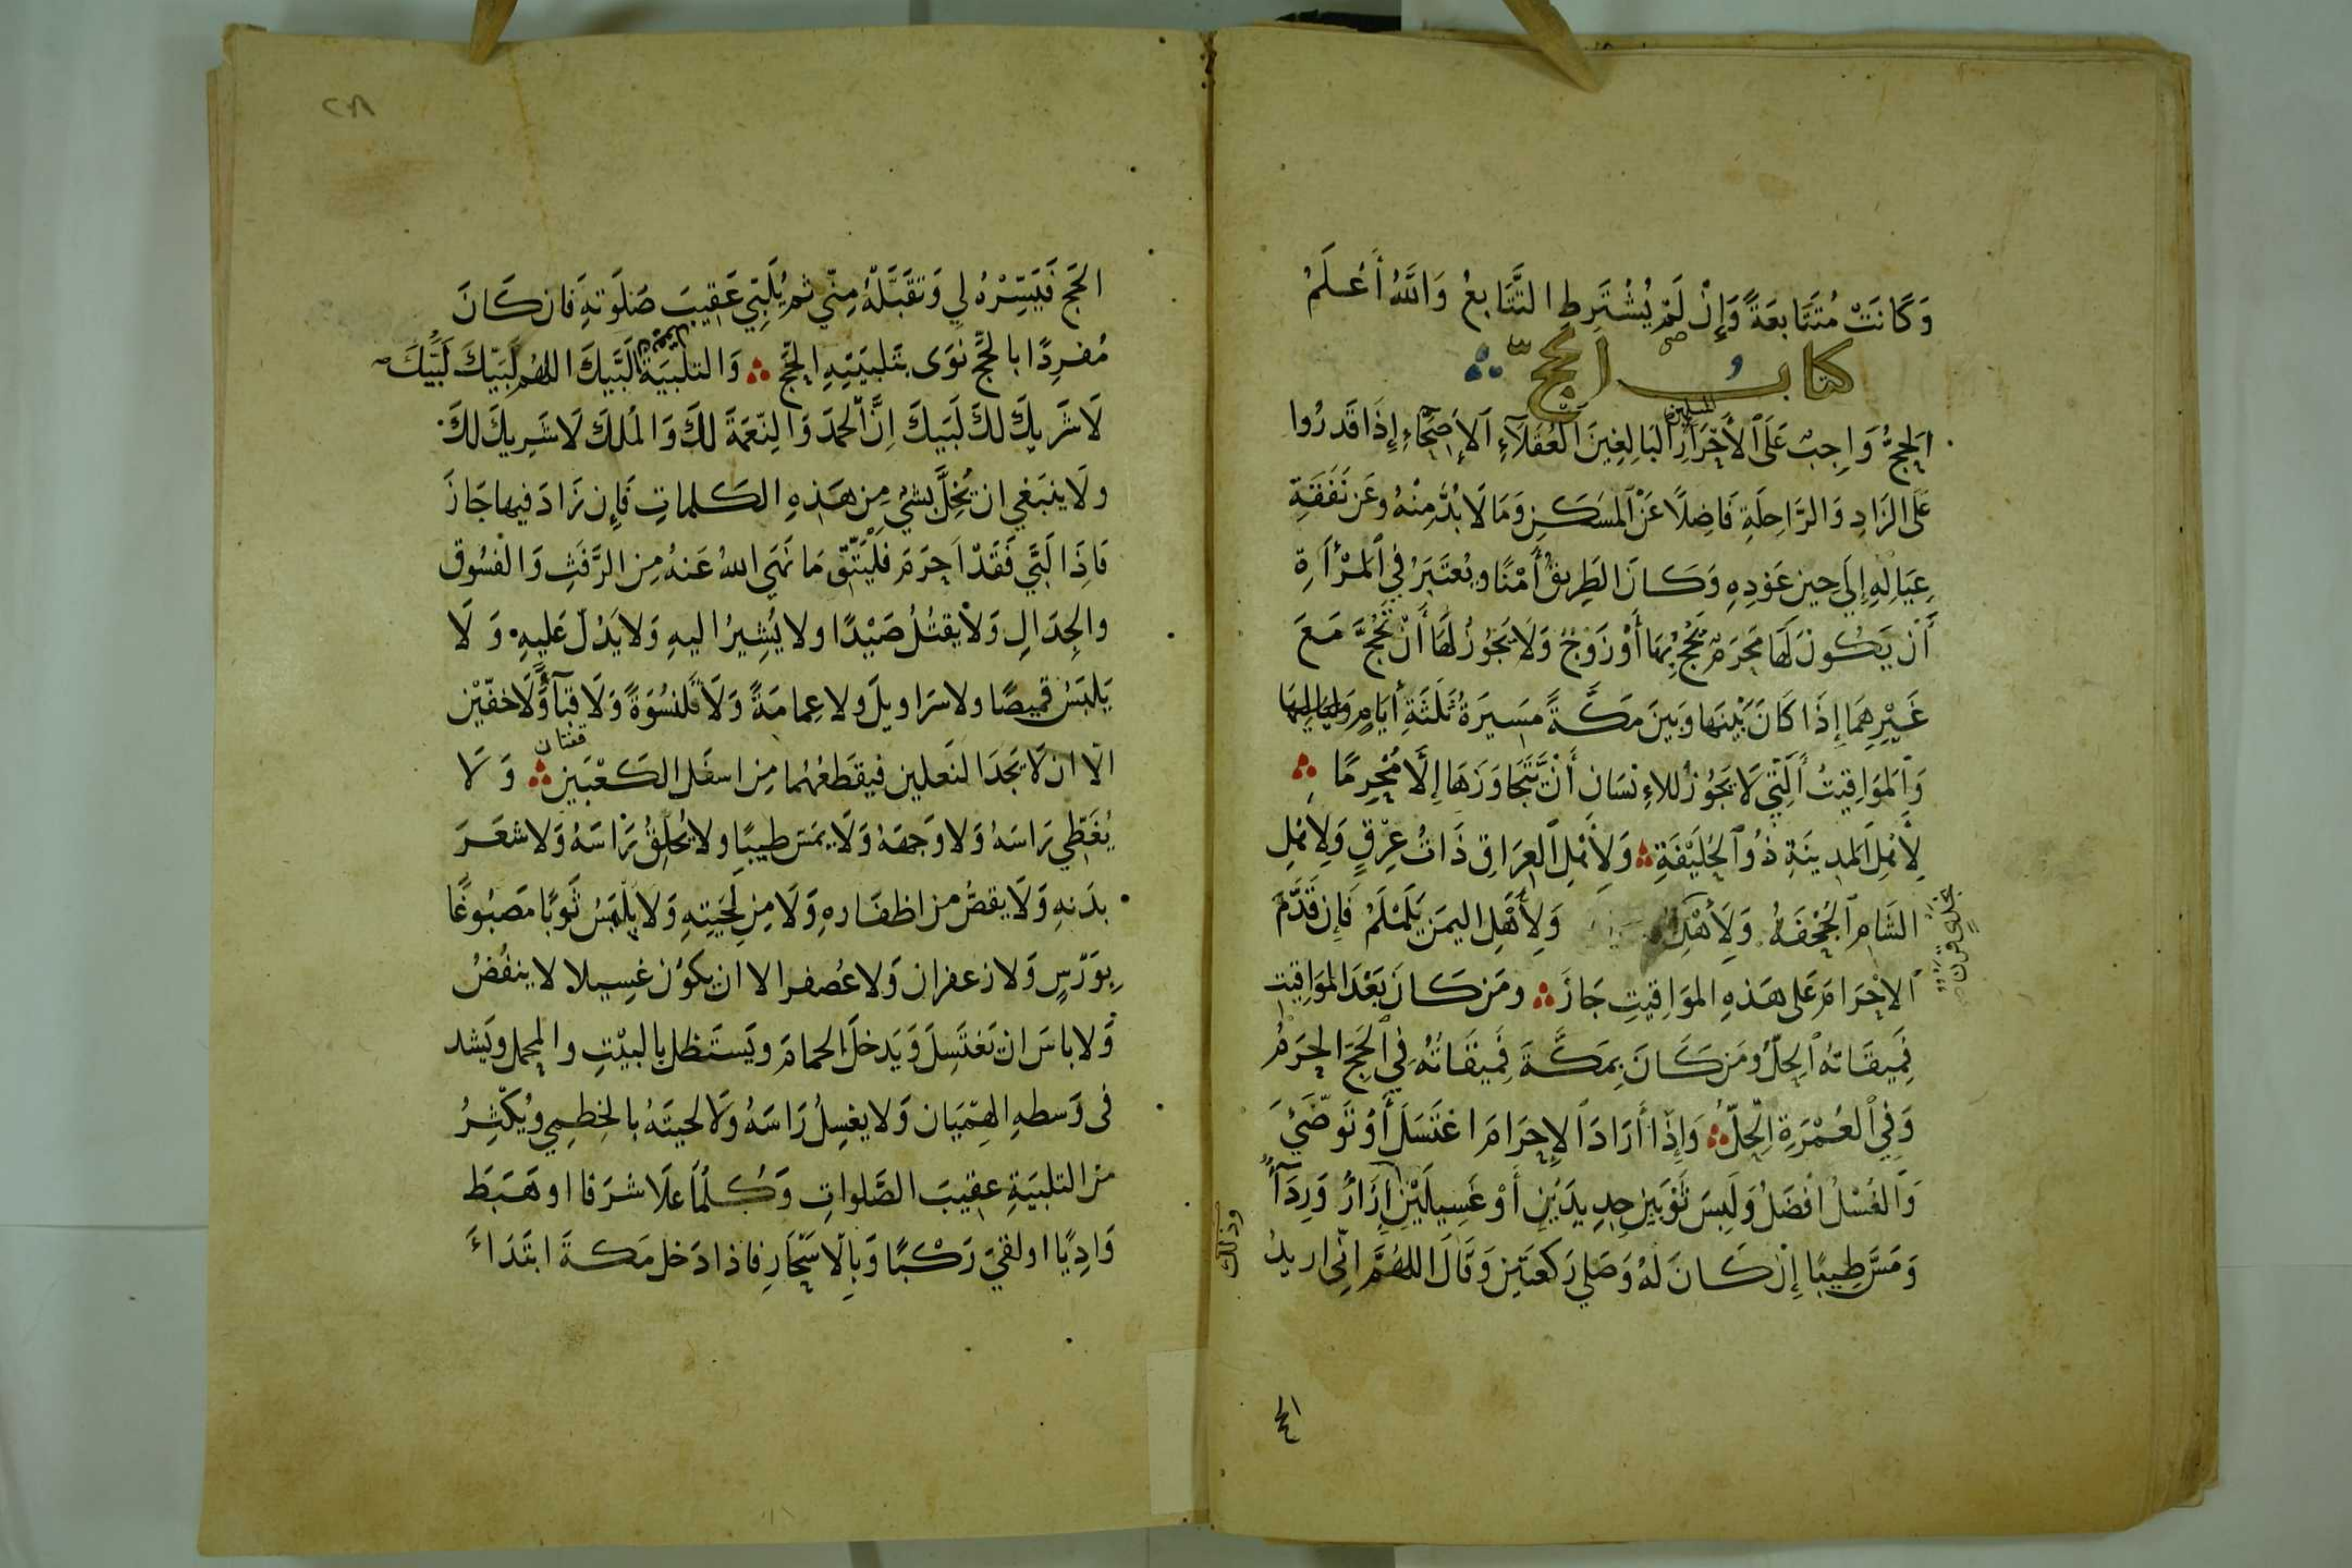 وَكَانَتْ مُتَتَابِعَةً وَإِنْ لَمْ يُشْتَرَطِ التَّتَابُعُ وَاللهُ أَعْلَمُ
كتاب الحج
اَلْحَجُّ وَاجِبٌ عَلَى الْأَحْرَارِ المسلمين الْبَالِغِينَ الْعُقَلَاءِ الْأَصِحَّاءِ إِذَا قَدَرُوا
عَلَى الزَّادِ وَالرَّاحِلَةِ فَاضِلًا عَنِ الْمَسْكَنِ وَمَا لَا بُدَّ مِنْهُ وَعَنْ نَفَقَةِ
عِيَالِهِ إِلَى حِينِ عَوْدِهِ وَكَانَ الطَّرِيقُ أَمْنًا وَيُعْتَبَرُ فِي الْمَرْأَةِ
أَنْ يَكُونَ لَهَا مَحْرَمٌ يَحُجُّ بِهَا أَوْ زَوْجٌ وَلَا يَجُوزُ لَهَا أَنْ تَحُجَّ مَعَ
غَيْرِهِمَا إِذَا كَانَ بَيْنَهَا وَبَيْنَ مَكَّةَ مَسِيرَةُ ثَلٰثَةِ أَيَّامٍ وَلَيَالِيهَا
وَالْمَوَاقِيتُ الَّتِي لَا يَجُوزُ لِلْإِنْسَانِ أَنْ يَتَجَاوَزَهَا إِلَّا مُحْرِمًا
لِأَهْلِ الْمَدِينَةِ ذُو الْحُلَيْفَةِ وَلِأَهْلِ الْعِرَاقِ ذَاتُ عِرْقٍ وَلِأَهْلِ
الشَّامِ الْجُحْفَةُ وَلِأَهْلِ وَلِأَهْلِ الْيَمَنِ يَلَمْلَمُ فَإِنْ قَدَّمَ
الْإِحْرَامَ عَلَى هَذِهِ الْمَوَاقِيتِ جَازَ وَمَنْ كَانَ بَعْدَ الْمَوَاقِيتِ
فَمِيقَاتُهُ الْحِلُّ وَمَنْ كَانَ بِمَكَّةَ فَمِيقَاتُهُ فِي الْحَجِّ الْحَرَمُ
وَفِي الْعُمْرَةِ الْحِلُّ وَإِذَا أَرَادَ الْإِحْرَامَ اغْتَسَلَ أَوْ تَوَضَّىَٔ
وَالْغُسْلُ أَفْضَلُ وَلَبِسَ ثَوْبَيْنِ جَدِيدَيْنِ أَوْ غَسِيلَيْنِ إِزَارٌ وَرِدَآءٌ
وذلك
وَمَسَّ طِيبًا إِنْ كَانَ لَهُ وَصَلَّى رَكْعَتَيْنِ وَقَالَ اللهُمَّ إِنِّي اريدُ
الحج
٢٨
الْحَجَّ فَيَسِّرْهُ لِي وَتَقَبَّلْهُ مِنِّي ثم يُلَبِّي عَقِيبَ صَلَوتِهِ فَان كَانَ
مُفْرِدًا بالحَجِّ نَوَى بِتَلْبِيَتِهِ الْحَجَّ وَالتَّلْبِيَةُ لَبَّيْكَ اللهُمَّ لَبَّيْكَ لَبَّيْكَ
لَا شَرِيكَ لَكَ لَبَّيْكَ إِنَّ الْحَمْدَ وَالنِّعْمَةَ لَكَ وَالْمُلْكَ لَا شَرِيكَ لَكَ
ولَا يَنْبَغِي ان يُخِلَّ بِشَيْءٍ مِنْ هَذِهِ الكَلماتِ فَإِن زَادَ فيها جَازَ
فَإِذَا لَبَّى فَقَدْ اَحْرَمَ فَلْيَتَّقِ مَا نَهَى اللهُ عَنْهُ مِن الرَّفَثِ وَالْفُسُوقِ
والجِدَالِ وَلَا يَقْتُلُ صَيْدًا ولا يُشِيرُ اليهِ وَلا يَدُلُّ عَلَيْهِ وَلَا
يَلْبَسُ قَمِيصًا ولا سَرَاوِيلَ ولا عِمَامَةً وَلَا قَلَنْسُوَةً وَلَا قَبَآءً وَلَا خُفَّيْنِ
الّا ان لَا يَجِدَ النَّعلين فَيَقْطَعَهُمَا مِن اسفَل الكَعْبَيْنِ وَلَا
يُغَطِّي رَاسَهُ وَلا وَجهَهُ وَلَا يَمَسَّ طِيبًا ولا يَحْلِقُ رَاسَهُ وَلا شَعَرَ
بَدَنِهِ وَلَا يَقُصُّ من اظفَارهِ وَلَا مِن لِحْيَتِهِ وَلَا يَلْبَسُ ثَوبًا مَصْبُوغًا
بِوَرْسٍ وَلا زعفران وَلا عُصفر الا ان يكوُن غسِيلا لا ينفُضُ
وَلا باسَ ان يَغتَسِلَ وَيَدخلَ الحمامَ ويَستَظل بالبيْتِ والمحمل ويَشد
فى وَسطهِ الهِمْيَان وَلا يغسِلُ رَاسَهُ وَلَا لحيَتَهُ بالخِطْمِي ويُكْثِرُ
من التلبيَةِ عقيبَ الصَّلواتِ وَكُلَّمَا عَلَا شرَفا او هَبَطَ
وَادِيًا او لقيَ رَكْبًا وَبِالاسْحَارِ فاذا دَخل مَكةَ ابتَدَاءَ